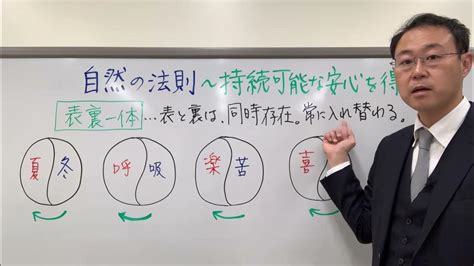 自然の法則～持続可能な安心を得
表裏一体…表と裏は、同時存在。常に入れ替わる。
夏 冬 呼 吸 楽 苦 喜